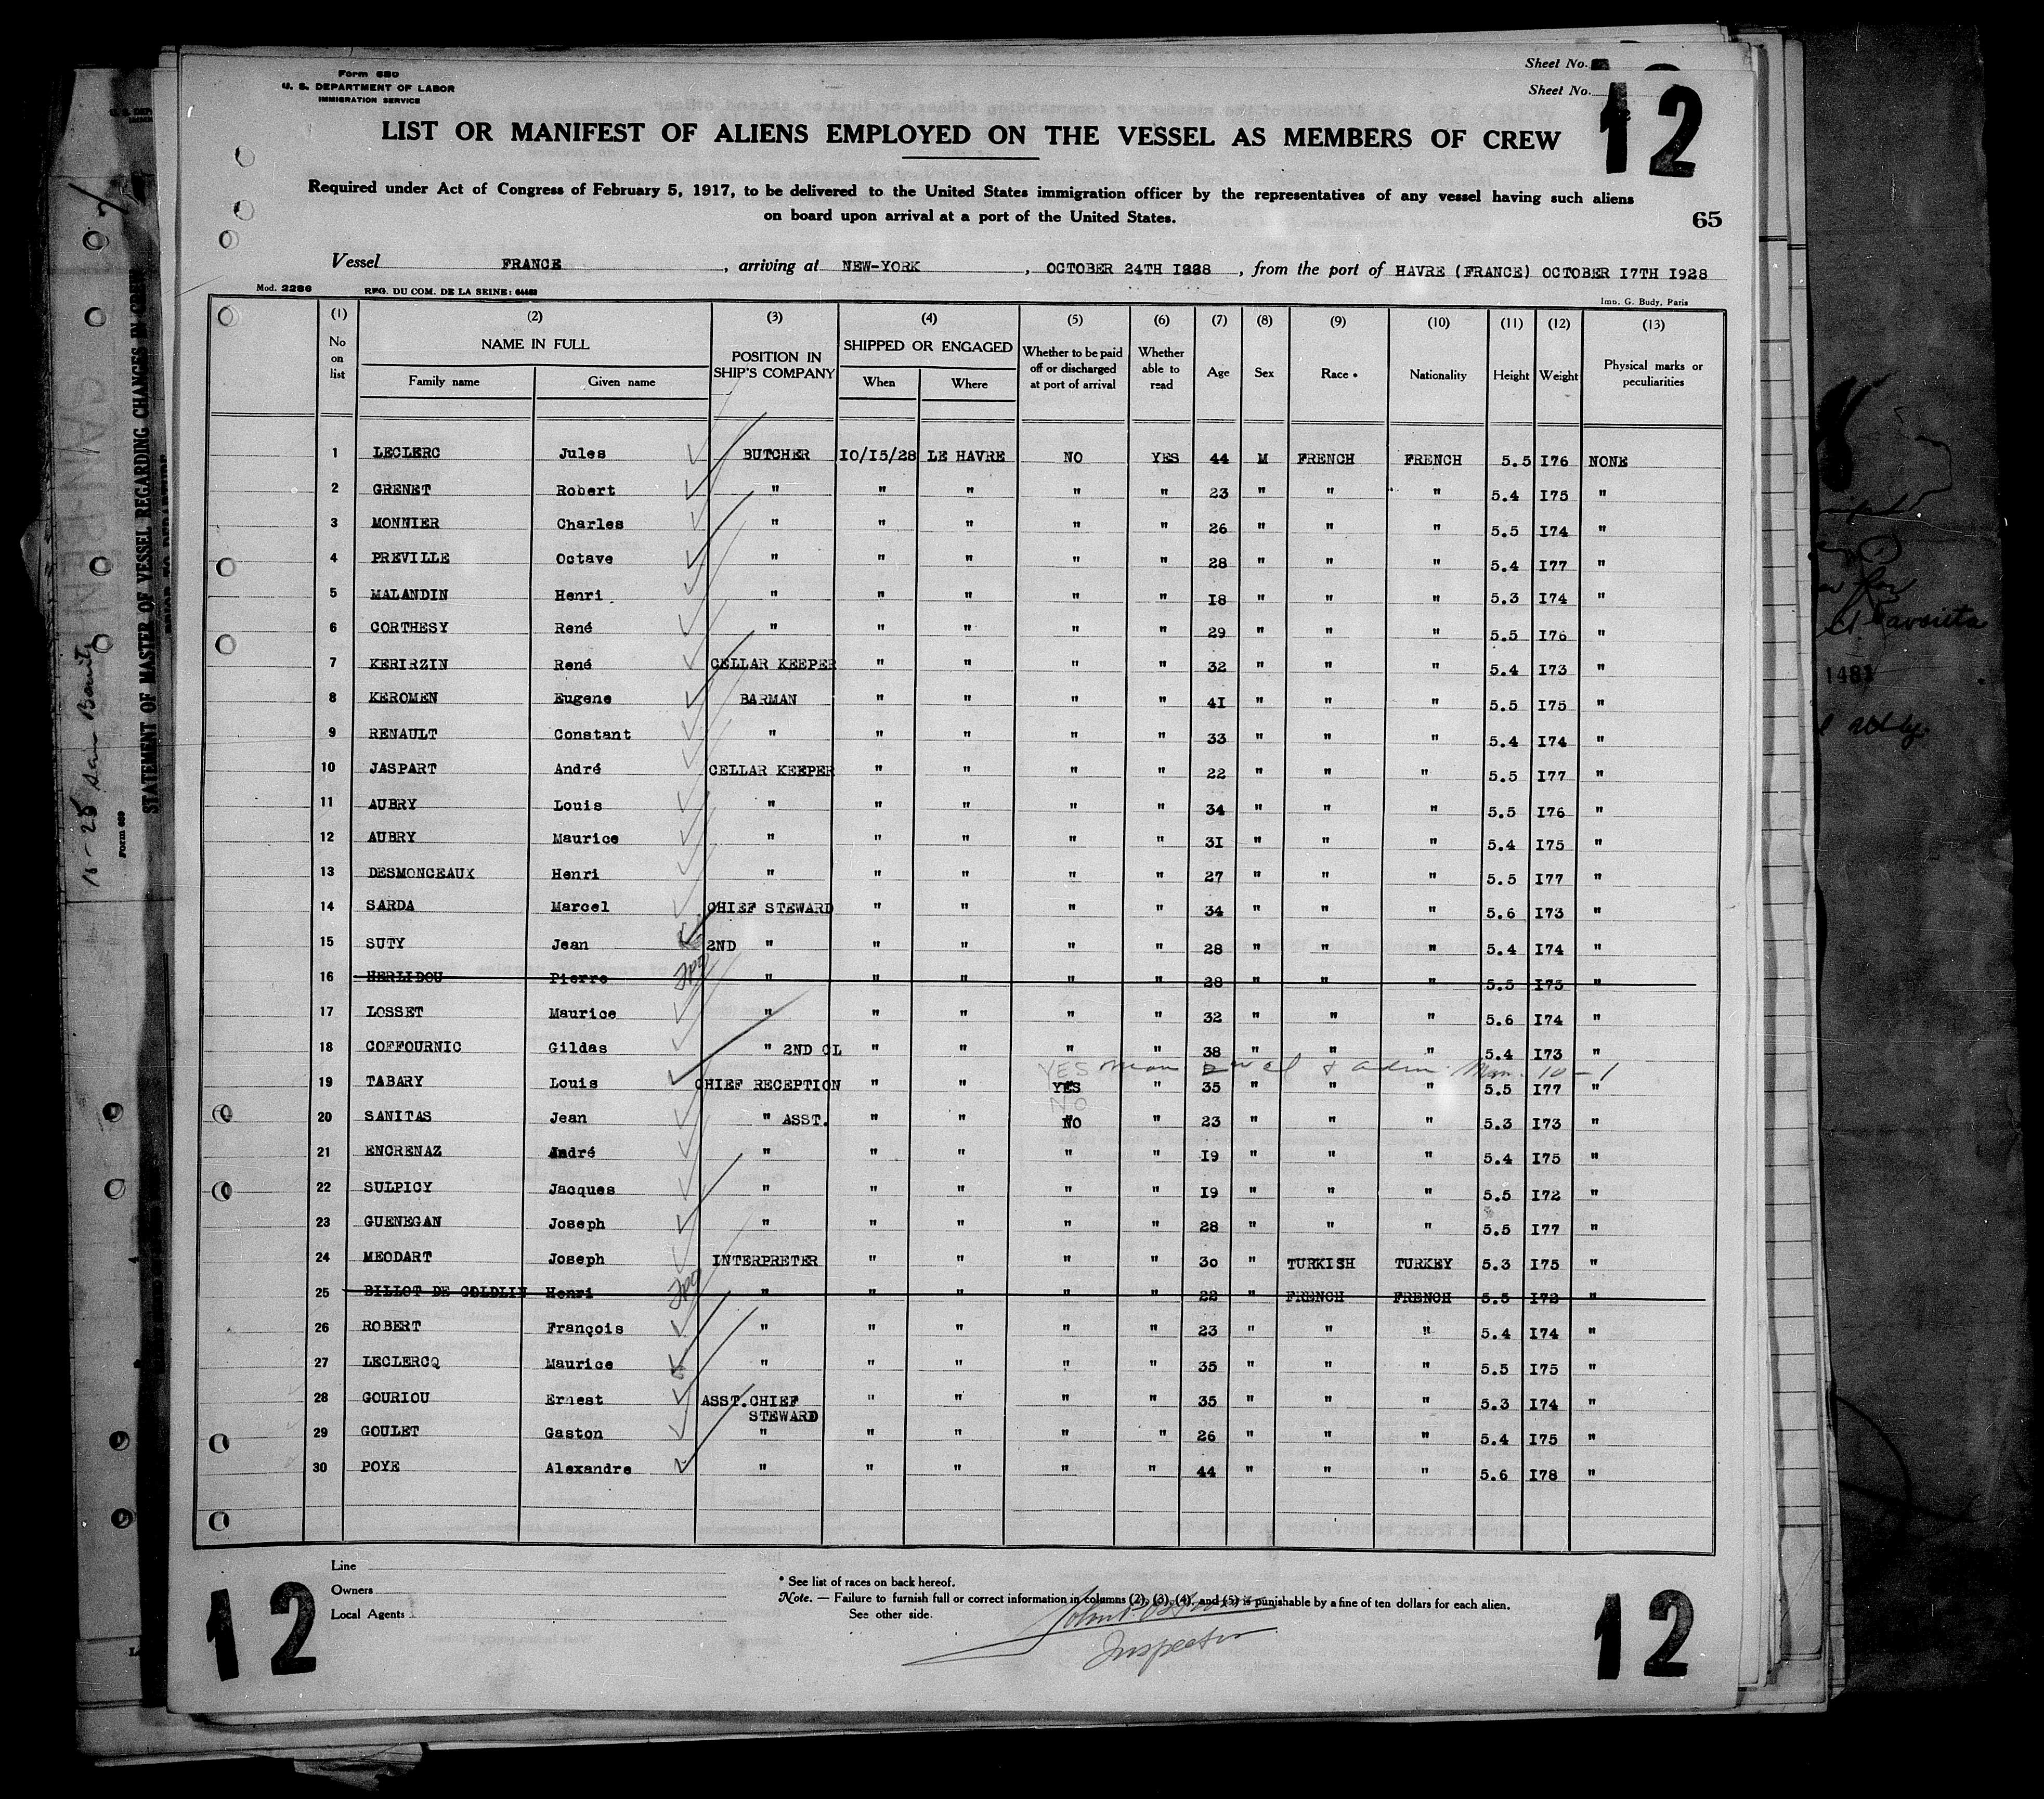 Form 680
U. S. DEPARTMENT OF LABOR
IMMIGRATION SERVICE
Sheet No.
Sheet No.
12
LIST OR MANIFEST OF ALIENS EMPLOYED ON THE VESSEL AS MEMBERS OF CREW
Required under Act of Congress of February 5, 1917, to be delivered to the United States immigration officer by the representatives of any vessel having such aliens
on board upon arrival at a port of the United States.
65
Vessel FRANCE, arriving at NEW-YORK, OCTOBER 24TH 1928, from the port of HAVRE (FRANCE) OCTOBER I7TH I928
Mod. 2286 REG. DU COM. DE LA SEINE: 64468 Imp. G. Budy, Paris
(1) (2) (3) (4) (5) (6) (7) (8) (9) (10) (11) (12) (13)
No on list NAME IN FULL Family name Given name POSITION IN SHIP'S COMPANY SHIPPED OR ENGAGED When Where Whether to be paid off or discharged at port of arrival Whether able to read Age Sex Race • Nationality Height Weight Physical marks or peculiarities
1 LECLERC Jules BUTCHER I0/I5/28 LE HAVRE NO YES 44 M FRENCH FRENCH 5.5 I76 NONE
2 GRENET Robert " " " " " 23 " " " 5.4 I75 "
3 MONNIER Charles " " " " " 26 " " " 5.5 I74 "
4 PREVILLE Octave " " " " " 28 " " " 5.4 I77 "
5 MALANDIN Henri " " " " " I8 " " " 5.3 I74 "
6 CORTHESY René " " " " " 29 " " " 5.5 I76 "
7 KERIRZIN René CELLAR KEEPER " " " " 32 " " " 5.4 I73 "
8 KEROMEN Eugene BARMAN " " " " 4I " " " 5.5 I75 "
9 RENAULT Constant " " " " " 33 " " " 5.4 I74 "
10 JASPART André CELLAR KEEPER " " " " 22 " " " 5.5 I77 "
11 AUBRY Louis " " " " " 34 " " " 5.5 I76 "
12 AUBRY Maurice " " " " " 3I " " " 5.4 I75 "
13 DESMONCEAUX Henri " " " " " 27 " " " 5.5 I77 "
14 SARDA Marcel CHIEF STEWARD " " " " 34 " " " 5.6 I73 "
15 SUTY Jean 2ND " " " " " 28 " " " 5.4 I74 "
16 HERLIDOU Pierre " " " " " 28 " " " 5.5 I75 "
17 LOSSET Maurice " " " " " 32 " " " 5.6 I74 "
18 COFFOURNIC Gildas " 2ND CL " " " " 38 " " " 5.4 I73 "
YES
19 TABARY Louis CHIEF RECEPTION " " YES " 35 " " " 5.5 I77 "
NO
20 SANITAS Jean " ASST. " " NO " 23 " " " 5.3 I73 "
21 ENCRENAZ André " " " " " I9 " " " 5.4 I75 "
22 SULPICY Jacques " " " " " I9 " " " 5.5 I72 "
23 GUENEGAN Joseph " " " " " 28 " " " 5.5 I77 "
24 MEODART Joseph INTERPRETER " " " " 30 " TURKISH TURKEY 5.3 I75 "
25 BILLOT DE GOLDLIN Henri " " " " " 22 " FRENCH FRENCH 5.5 I72 "
26 ROBERT François " " " " " 23 " " " 5.4 I74 "
27 LECLERCQ Maurice " " " " " 35 " " " 5.5 I75 "
28 GOURIOU Ernest ASST.CHIEF STEWARD " " " " 35 " " " 5.3 I74 "
29 GOULET Gaston " " " " " 26 " " " 5.4 I75 "
30 POYE Alexandre " " " " " 44 " " " 5.6 I78 "
Line
Owners
Local Agents
* See list of races on back hereof.
Note. — Failure to furnish full or correct information in columns (2), (3), (4), and (5) is punishable by a fine of ten dollars for each alien.
See other side.
Inspector
12
12
STATEMENT OF MASTER OF VESSEL REGARDING CHANGES IN CREW
Form 689
1481